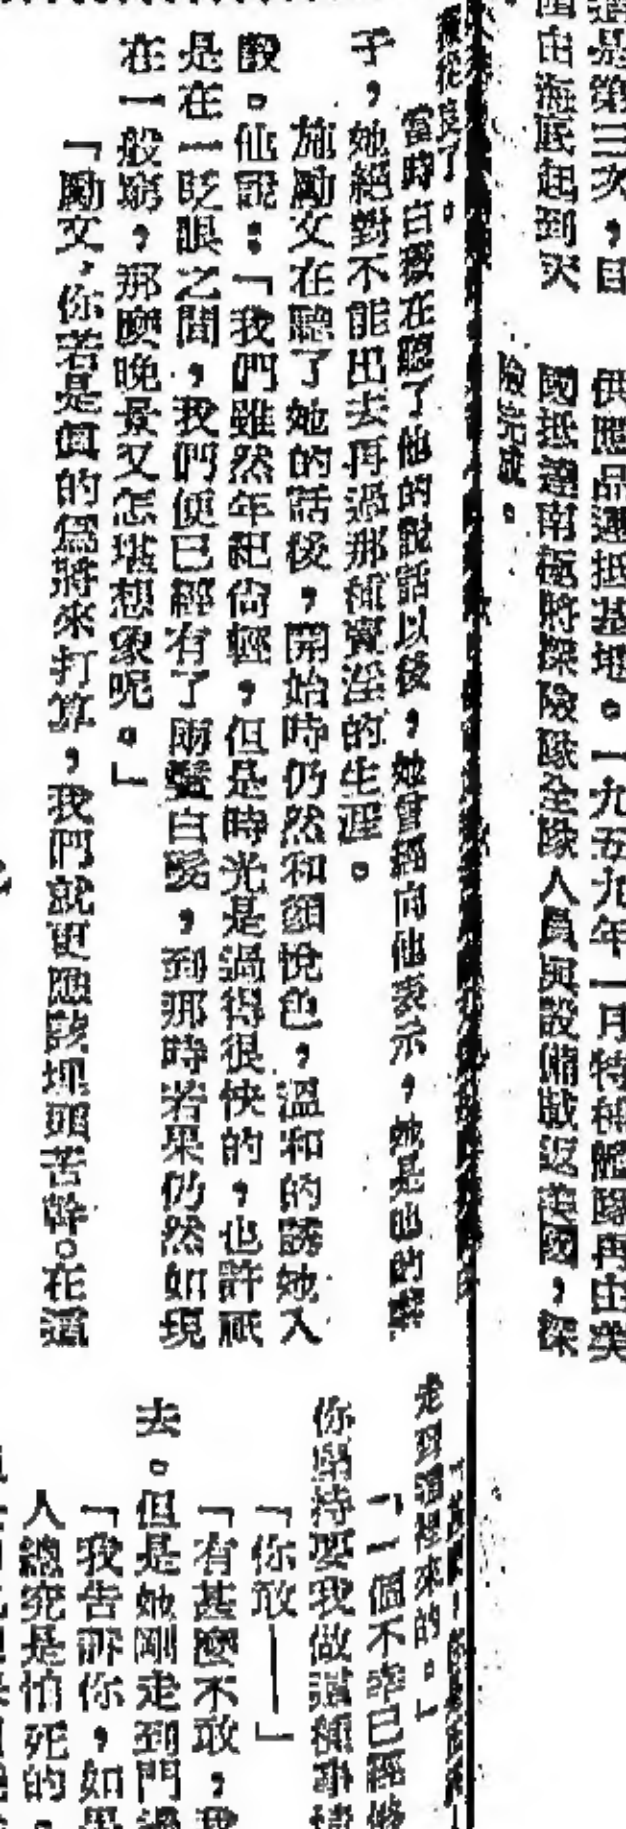 這是第三次，
由海底起到天
供應品運抵基地。一九五九年一月特種艦隊再由美
國抵達南極將探險隊全隊人員與設備載返美國，探
險完成。
從良了。
當時白薇在聽了他的說話以後，她曾經向他表示，她是他的妻
子，她絕對不能出去再過那種賣淫的生涯。
施勵文在聽了她的話後，開始時仍然和顏悅色，溫和的誘她入
彀。他說：「我們雖然年紀尚輕，但是時光是過得很快的，也許祇
是在一眨眼之間，我們便已經有了兩鬢白髮，到那時若果仍然如現
在一般窮，那麼晚景又怎堪想象呢。」
「勵文，你若是眞的爲將來打算，我們就更應該埋頭苦幹。在這
走到這裡來的。」
「一個不幸已經
你堅持要我做這種事情
「你敢——」
「有甚麼不敢，我
去。但是她剛走到門邊
「我告訴你，如果
人總究是怕死的，